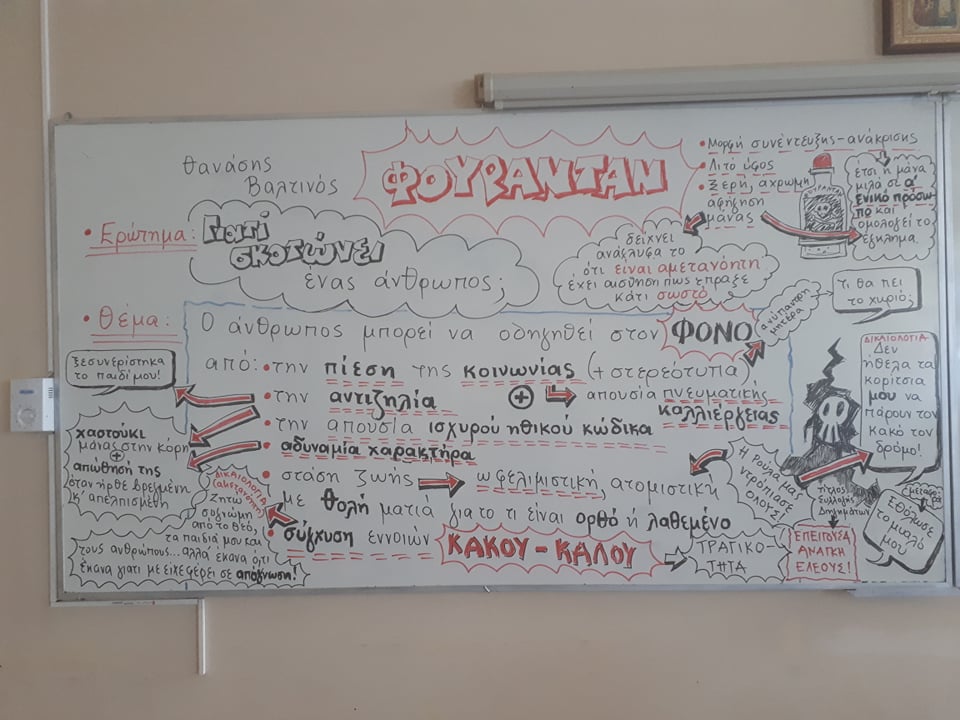 Θανάσης
Βαλτινός
ΦΟΥΡΑΝΤΑΝ
• Μορφή συνέντευξης-ανάκρισης
• Λιτό ύφος
• Ξερή, άχρωμη
αφήγηση
μάνας
ΦΟΥΡΑΝΤΑΝ
έτσι η μάνα
μιλά σε α'
ενικό πρόσω-
πο και
ομολογεί το
έγκλημα.
δείχνει
ανάγλυφα το
ότι είναι αμετανόητη
έχει αίσθηση πως έπραξε
κάτι σωστό
• Ερώτημα:
Γιατί
σκοτώνει
ένας άνθρωπος;
ανύπαντρη
μητέρα
Τι θα πει
το χωριό;
• Θέμα:
Ο άνθρωπος μπορεί να οδηγηθεί στον ΦΟΝΟ
από: • την πίεση της κοινωνίας (+στερεότυπα)
• την αντιζηλία + απουσία πνευματικής
καλλιέργειας
• την απουσία ισχυρού ηθικού κώδικα
• αδυναμία χαρακτήρα
• στάση ζωής ωφελιμιστική, ατομιστική
με θολή ματιά για το τι είναι ορθό ή λαθεμένο
• σύγχυση εννοιών ΚΑΚΟΥ - ΚΑΛΟΥ
ΤΡΑΓΙΚΟ-
ΤΗΤΑ
ΕΠΕΙΓΟΥΣΑ
ΑΝΑΓΚΗ
ΕΛΕΟΥΣ!
τίτλος
συλλογής
διηγημάτων
ξεσυνερίστηκα
το παιδί μου!
χαστούκι
μάνας στην κόρη
+
απώθησή της
όταν ήρθε βρεγμένη
κ' απελπισμένη
ΔΙΚΑΙΟΛΟΓΙΑ
(αμετανόητη)
Ζητώ
συγγνώμη
από το Θεό,
τα παιδιά μου και
τους ανθρώπους... αλλά έκανα ό,τι
έκανα γιατί με είχε φέρει σε απόγνωση!
Η Ρούλα μάς
ντρόπιασε
όλους!
ΔΙΚΑΙΟΛΟΓΙΑ
Δεν
ήθελα τα
κορίτσια
μου να
πάρουν τον
κακό τον
δρόμο!
μεταφορά
Εθόλωσε
το μυαλό
μου